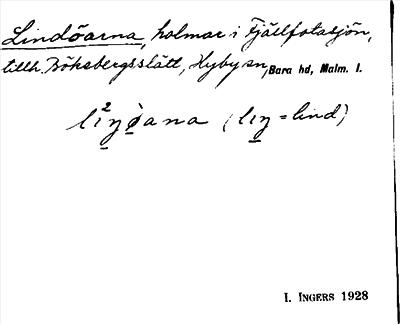 Lindöarna, holmar i Fjällfotasjön,
tillh. Bökebergsslätt, Hyby sn, Bara hd, Malm. l.
li²ŋø̀ana (lıŋ = lind)
I. INGERS 1928